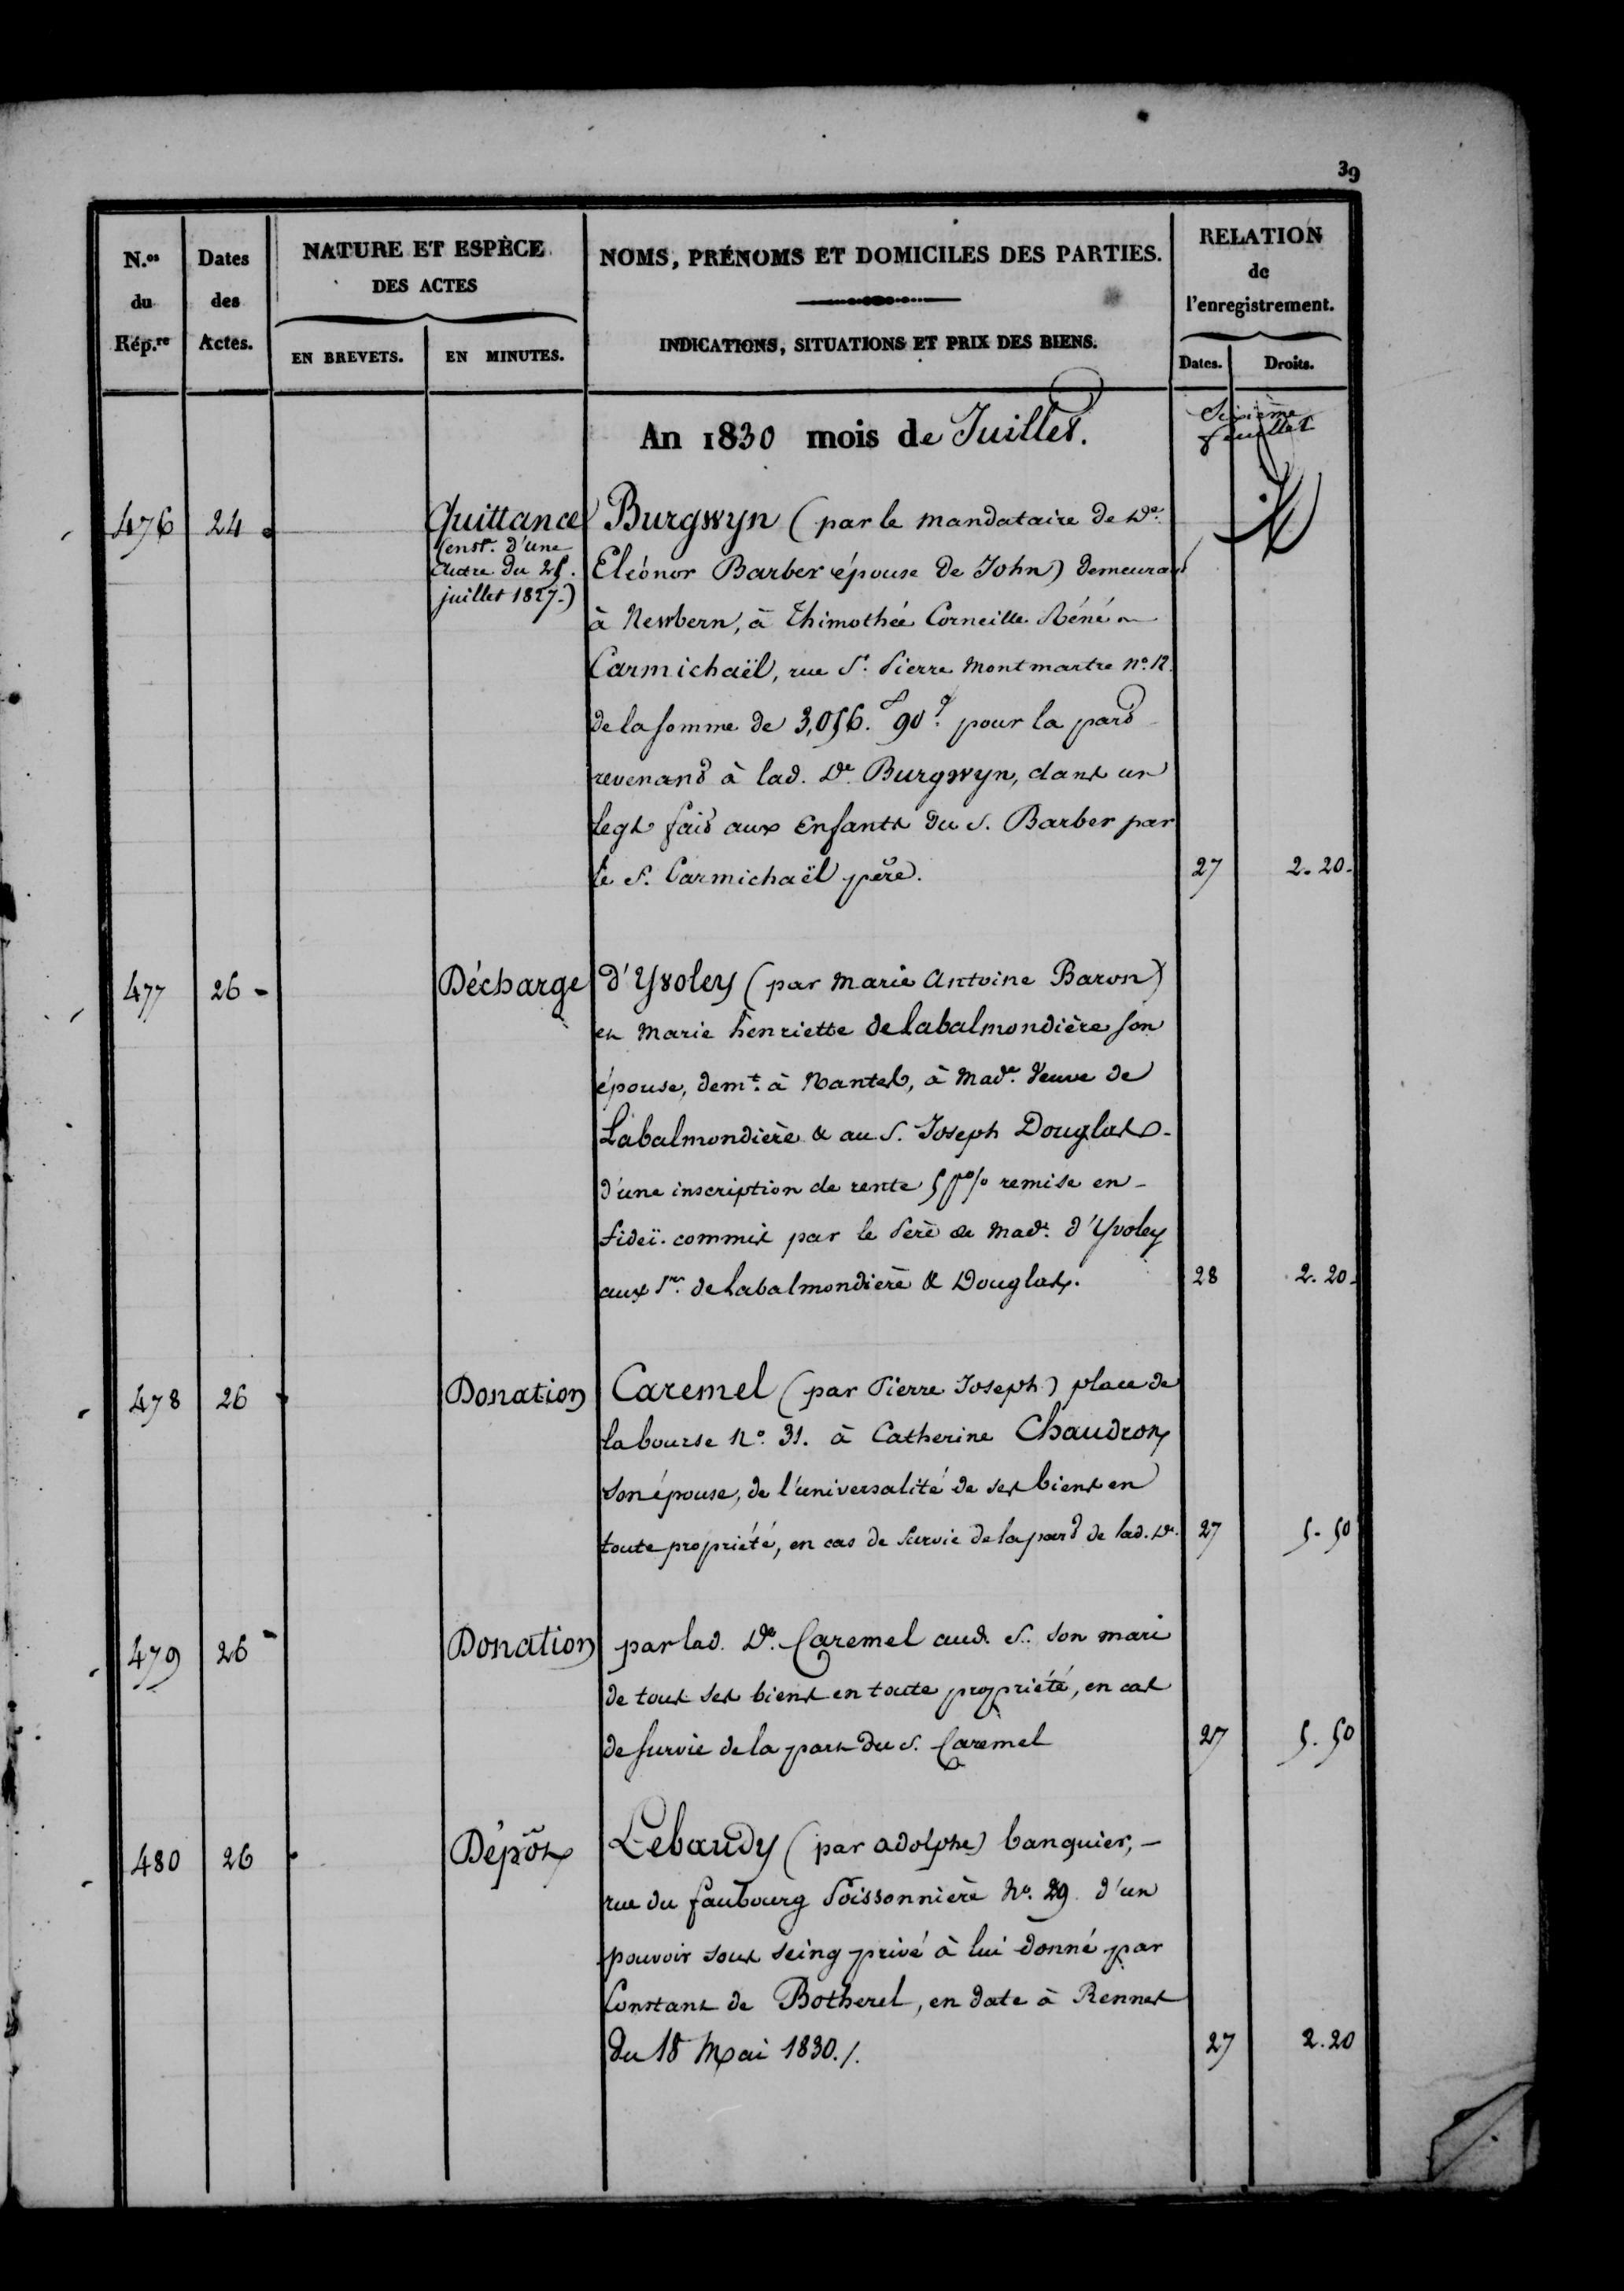 39
N.os du Rép.re
Dates des Actes.
NATURE ET ESPÈCE DES ACTES
EN BREVETS.
EN MINUTES.
NOMS, PRÉNOMS ET DOMICILES DES PARTIES.
INDICATIONS, SITUATIONS ET PRIX DES BIENS.
RELATION de l'enregistrement.
Dates.
Droits.
An 1830 mois de Juillet.
Sixième
feuillet
476 24 Quittance Burgwyn (par le mandataire de De.
(enst. d'une Eléonor Barber épouse de John) demeurant
autre du 25.
juillet 1827.)
à Newbern, à Thimothée Corneille Réné
Carmichaël, rue St. Pierre Montmartre no. 12.
de la somme de 3,056.f 90c. pour la part
revenant à lad. De. Burgwyn, dans un
legs fait aux Enfants du S. Barber par
le S. Carmichaël père. 27 2.20.
477 26 Décharge d'Yvoley (par Marie Antoine Baron)
et Marie henriette de Labalmondière son
épouse, demt. à Nantes, à Made. Veuve de
Labalmondière & au S. Joseph Douglas
d'une inscription de rente 5 p% remise en
fideï-commis par le Père de Made. d'Yvoley
aux Srs. de Labalmondière & Douglas. 28 2.20.
478 26 Donation Caremel (par Pierre Joseph) place de
la bourse No. 31. à Catherine Chaudron
son épouse, de l'universalité de ses biens en
toute propriété, en cas de survie de la part de lad. De. 27 5.50
479 26 Donation par lad. De. Caremel aud. S. son mari
de tous ses biens en toute propriété, en cas
de survie de la part du S. Caremel 27 5.50
480 26 Dépôt Lebaudy (par adolphe) banquier,
rue du faubourg Poissonnière No. 29 d'un
pouvoir sous seing privé à lui donné par
Constant de Botherel, en date à Rennes
du 18 Mai 1830./. 27 2.20